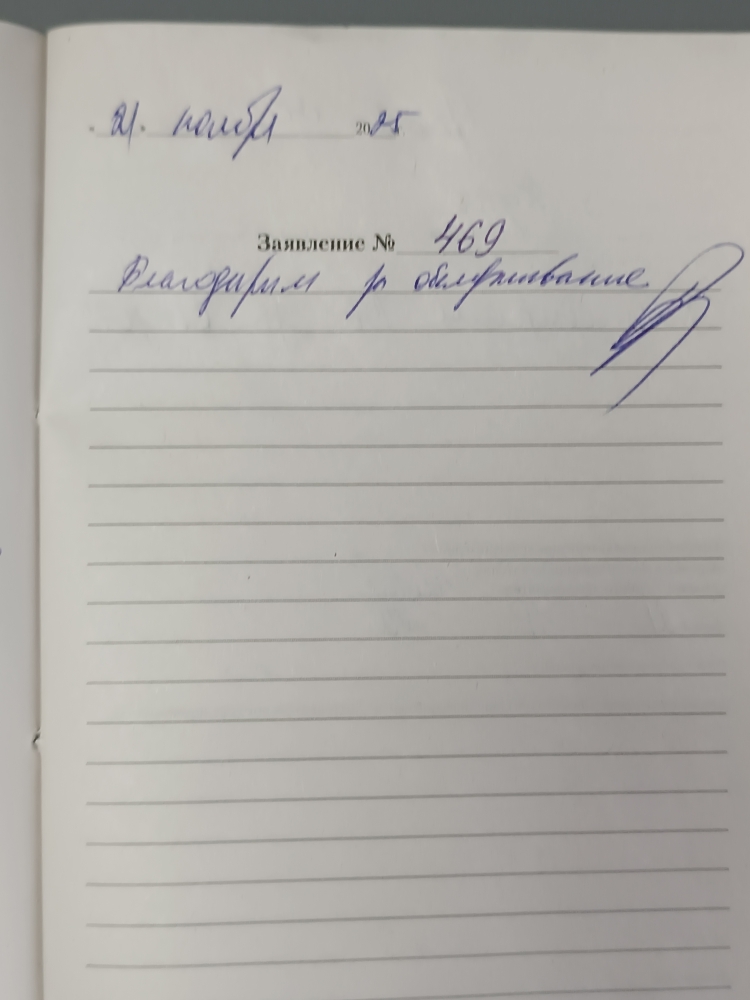 21. ноября 2025
Заявление № 469
Благодарим за обслуживание